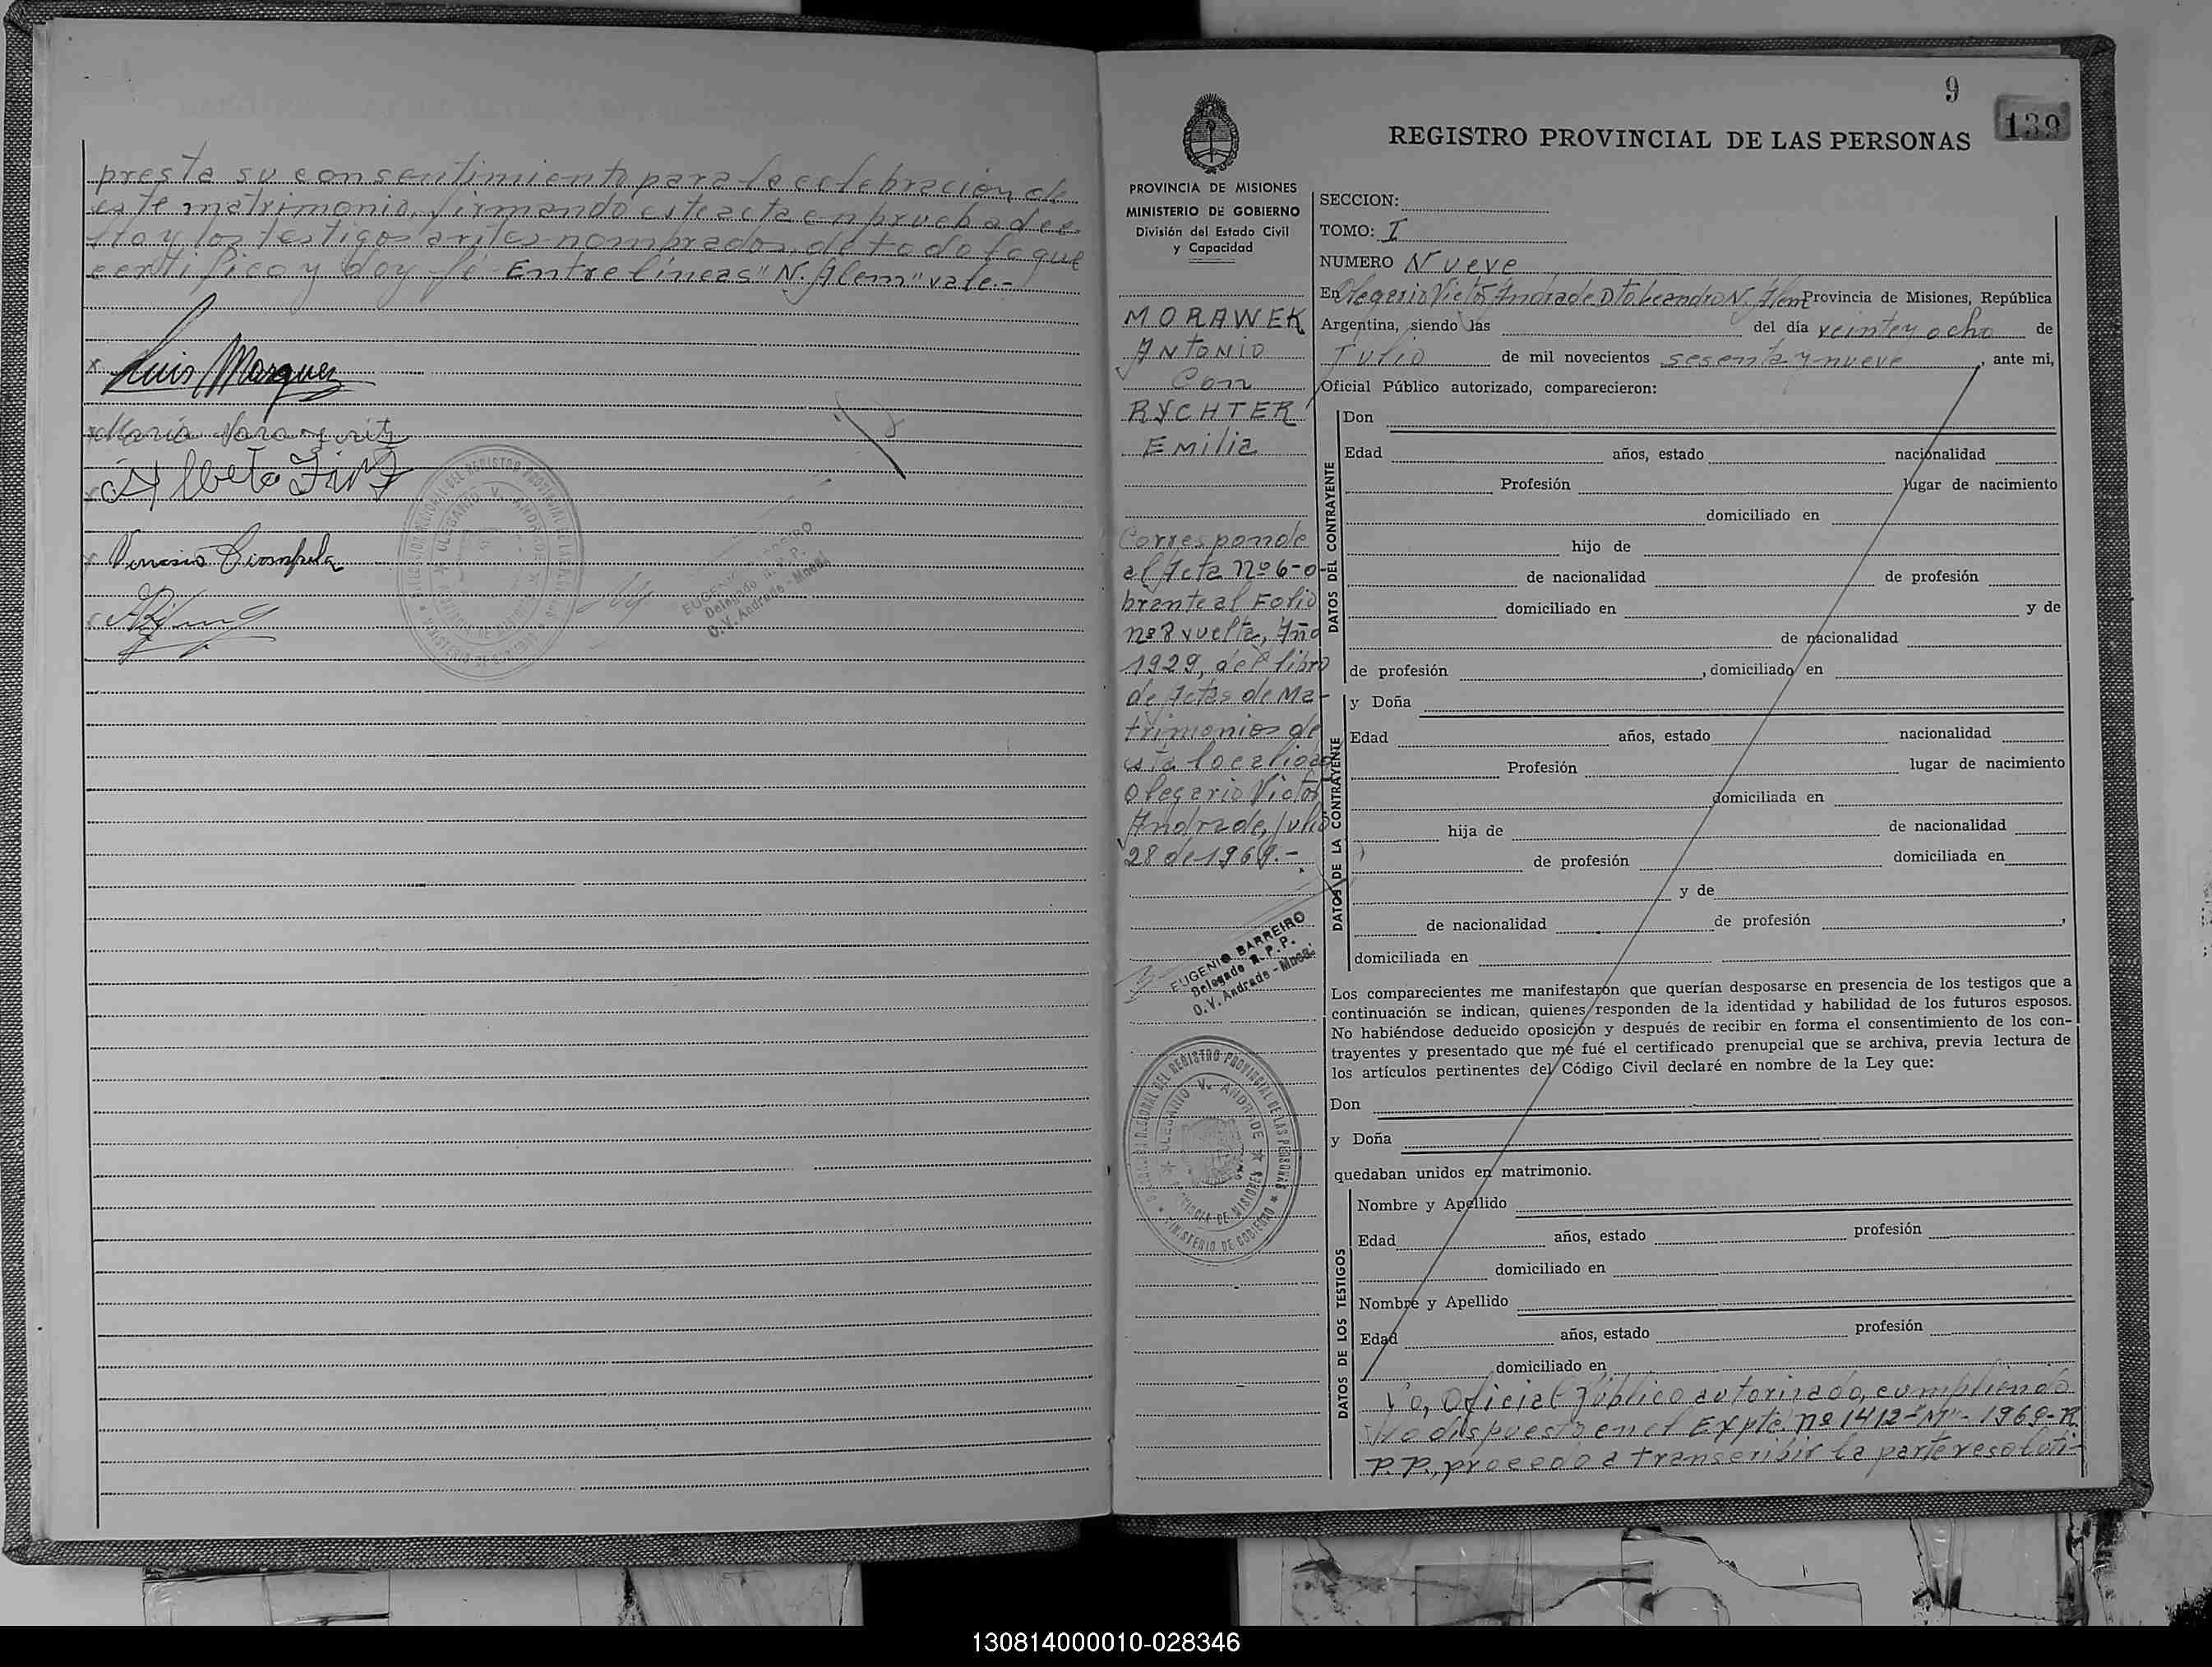 presta su consentimiento para la celebración de
este matrimonio, firmando este acta en prueba de e-
llo y los testigos antes nombrados, de todo lo que
certifico y doy fé - Entre líneas "N. Alem" vale.-
x Luis Marquez
x Maria
x Alberto
x
EUGENIO BARREIRO
Delegado R.P.P.
O.V. Andrade - Mnes.
9
139
REGISTRO PROVINCIAL DE LAS PERSONAS
PROVINCIA DE MISIONES
MINISTERIO DE GOBIERNO
División del Estado Civil
y Capacidad
MORAWEK
Antonio
Con
RYCHTER
Emilia
Corresponde
al Acta nº 6-o
brante al Folio
nº 8 vuelta, Año
1929, del libro
de Actas de Ma-
trimonios de
esta localidad
Olegario Victor
Andrade, Julio
28 de 1969.-
EUGENIO BARREIRO
Delegado R.P.P.
O.V. Andrade - Mnes.
DELEGACION REGIONAL DEL REGISTRO PROVINCIAL DE LAS PERSONAS
OLEGARIO V. ANDRADE
PROVINCIA DE MISIONES
MINISTERIO DE GOBIERNO
SECCION:
TOMO: I
NUMERO Nueve
En Olegario Victor Andrade Dto Leandro N. Alem Provincia de Misiones, República
Argentina, siendo las del día veinte y ocho de
Julio de mil novecientos sesenta y nueve, ante mi,
Oficial Público autorizado, comparecieron:
DATOS DEL CONTRAYENTE
Don
Edad años, estado nacionalidad
Profesión lugar de nacimiento
domiciliado en
hijo de
de nacionalidad de profesión
domiciliado en y de
de nacionalidad
de profesión , domiciliado en
DATOS DE LA CONTRAYENTE
y Doña
Edad años, estado nacionalidad
Profesión lugar de nacimiento
domiciliada en
hija de de nacionalidad
de profesión domiciliada en
y de
de nacionalidad de profesión ,
domiciliada en
Los comparecientes me manifestaron que querían desposarse en presencia de los testigos que a
continuación se indican, quienes responden de la identidad y habilidad de los futuros esposos.
No habiéndose deducido oposición y después de recibir en forma el consentimiento de los con-
trayentes y presentado que me fué el certificado prenupcial que se archiva, previa lectura de
los artículos pertinentes del Código Civil declaré en nombre de la Ley que:
Don
y Doña
quedaban unidos en matrimonio.
DATOS DE LOS TESTIGOS
Nombre y Apellido
Edad años, estado profesión
domiciliado en
Nombre y Apellido
Edad años, estado profesión
domiciliado en
Yo, Oficial Público autorizado, cumpliendo
lo dispuesto en el Expte. nº 1412-"M"- 1969-R.
P.P., procedo a transcribir la parte resoluti-
130814000010-028346